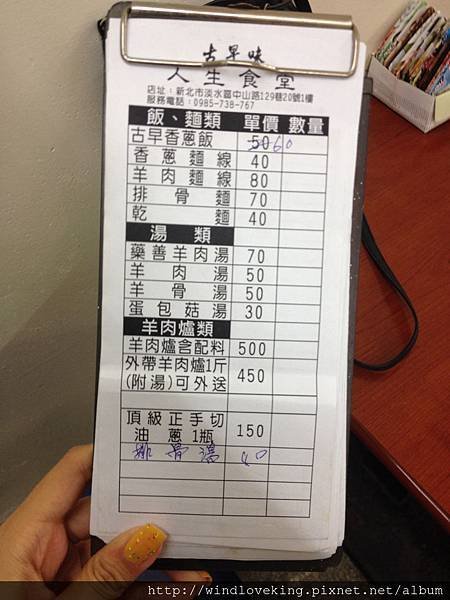 古早味
人生食堂
店址：新北市淡水區中山路129巷20號1樓
服務電話：0985-738-767
飯、麵類 單價 數量
古早香蔥飯 50 60
香蔥麵線 40
羊肉麵線 80
排骨麵 70
乾麵 40
湯類
藥善羊肉湯 70
羊肉湯 50
羊骨湯 50
蛋包菇湯 30
羊肉爐類
羊肉爐含配料 500
外帶羊肉爐1斤
(附湯)可外送 450
頂級正手切
油蔥1瓶 150
排骨湯 40
http://windloveking.pixnet.net/album